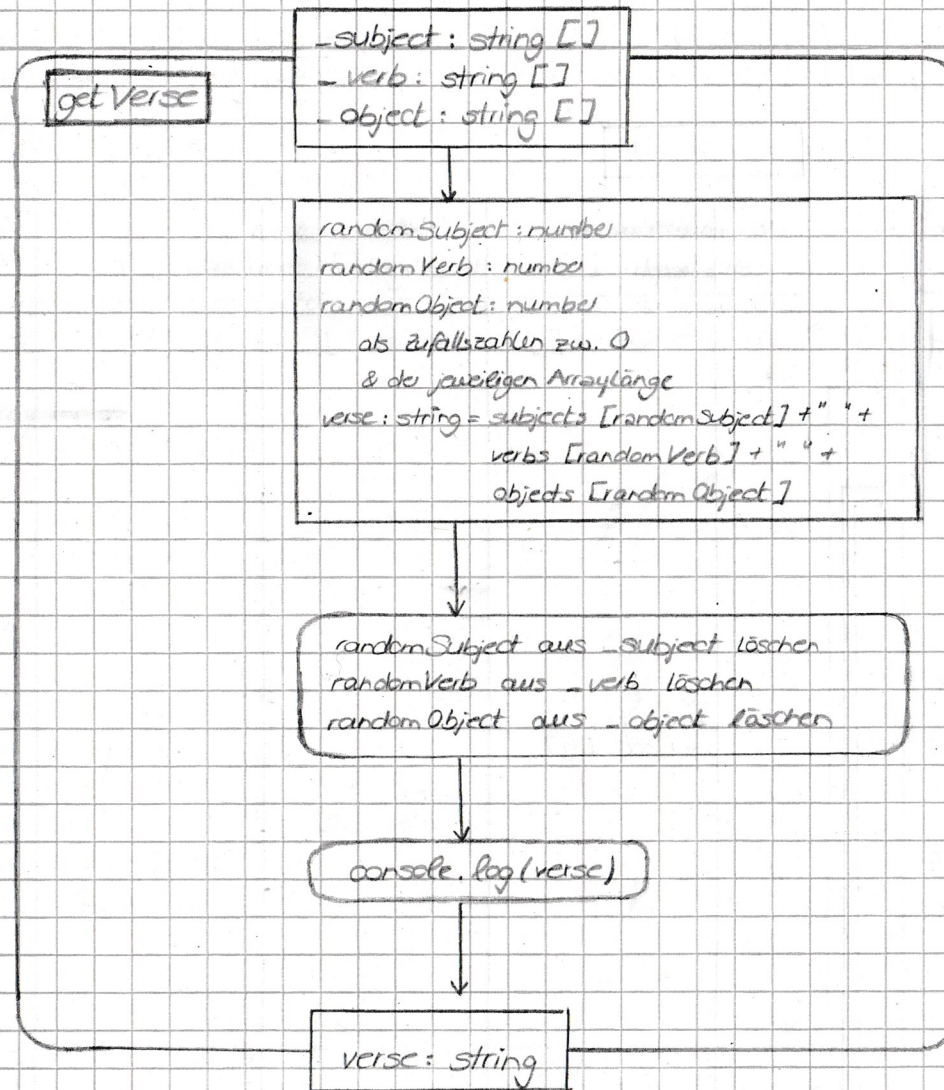 getVerse
_subject : string []
_verb : string []
_object : string []
randomSubject : number
randomVerb : number
randomObject : number
als Zufallszahlen zw. 0
& der jeweiligen Arraylänge
verse : string = subjects [randomSubject] + " " +
verbs [randomVerb] + " " +
objects [randomObject]
randomSubject aus _subject löschen
randomVerb aus _verb löschen
randomObject aus _object löschen
console.log(verse)
verse : string